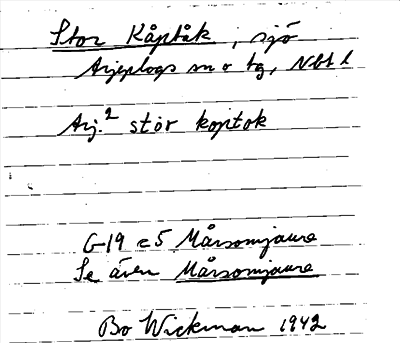 Stor Kåptåk, sjö
Arjeplogs sn o tg, Nbt l
Arj.² stör koptok
G-19 c5 Mårsomjaure
Se även Mårsomjaure
Bo Wickman 1942